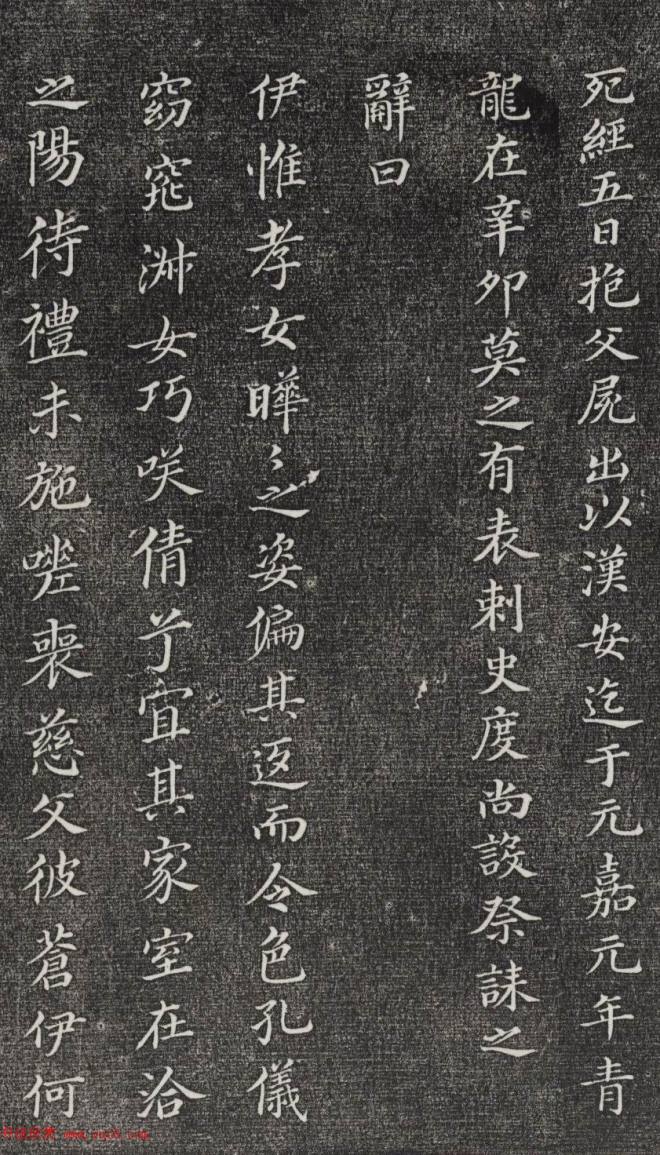 死經五日抱父屍出以漢安迄于元嘉元年青
龍在辛卯莫之有表刺史度尚設祭誄之
辭曰
伊惟孝女曄〻之姿偏其返而令色孔儀
窈窕淑女巧咲倩兮宜其家室在洽
之陽待禮未施嗟喪慈父彼蒼伊何